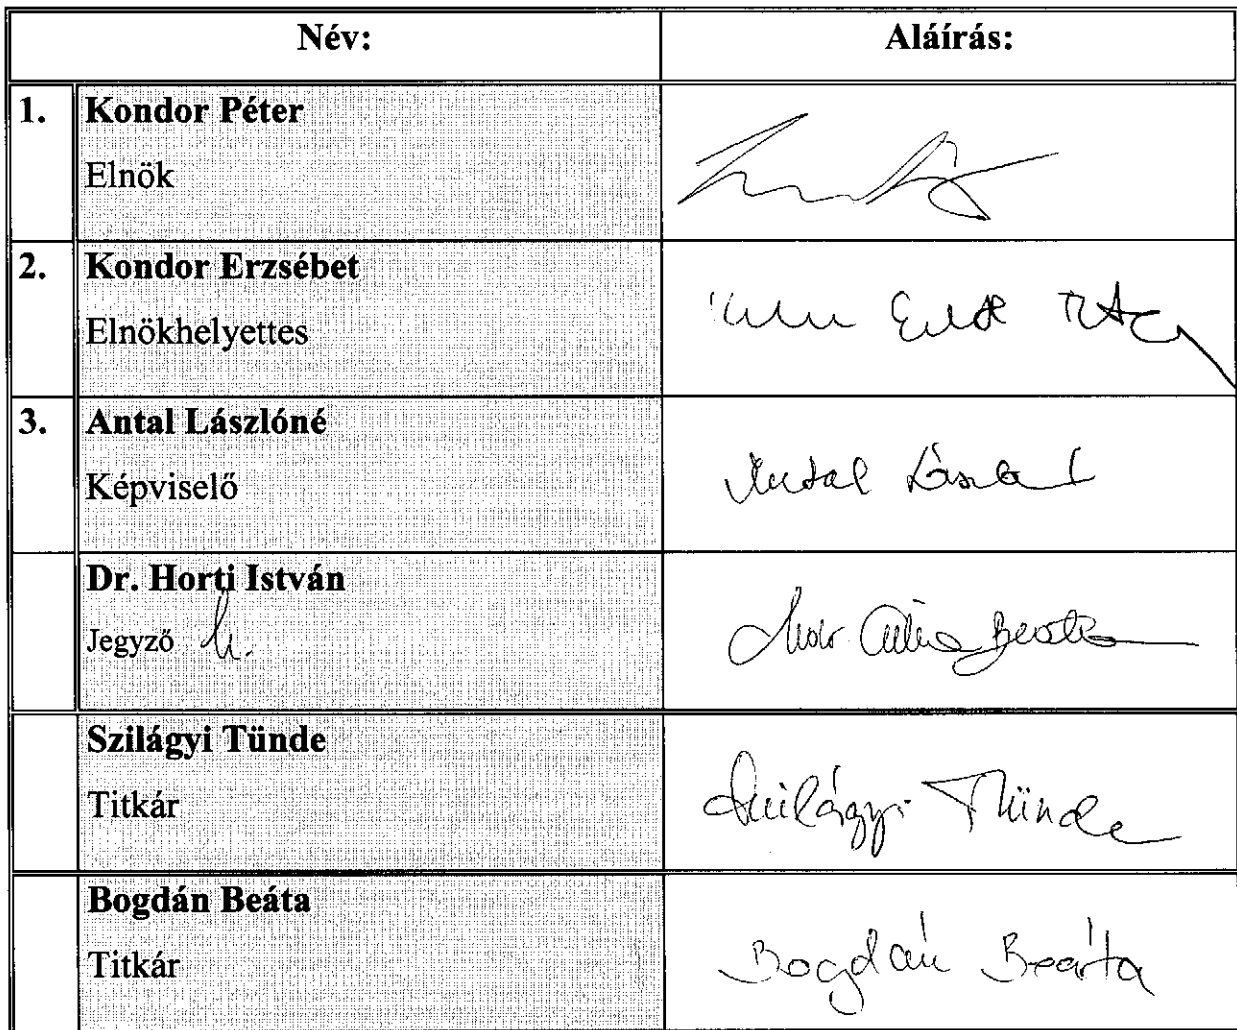 Név: Aláírás:
1. Kondor Péter
Elnök
2. Kondor Erzsébet
Elnökhelyettes
3. Antal Lászlóné
Képviselő
Antal
Dr. Horti István
Jegyző h.
Szilágyi Tünde
Titkár
Szilágyi Tünde
Bogdán Beáta
Titkár
Bogdán Beáta